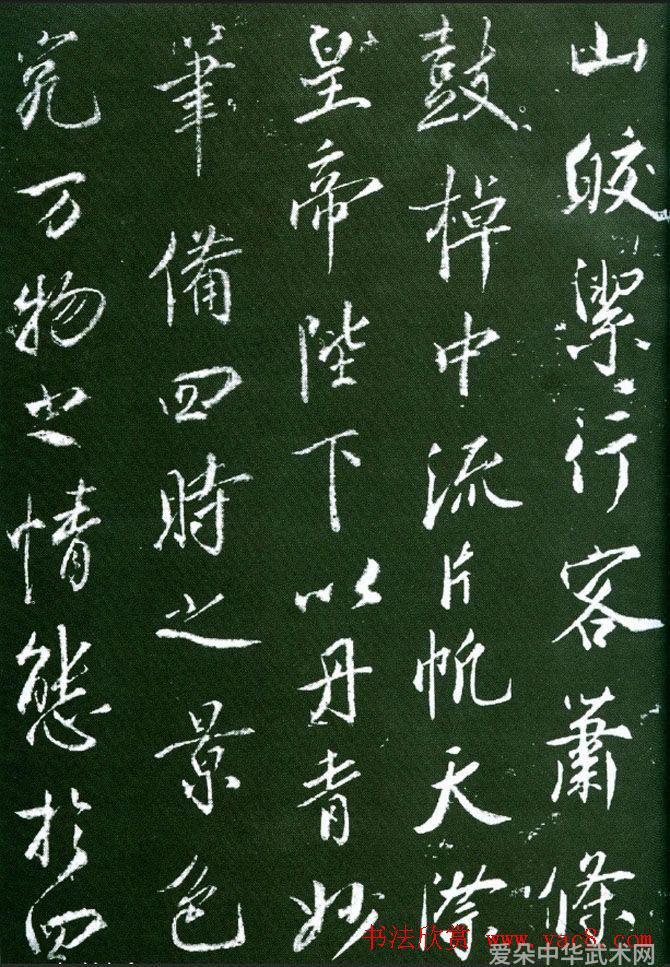 山皎潔行客蕭條
鼓棹中流片帆天際
皇帝陛下以丹青妙
筆備四時之景色
究万物之情態於四
书法欣赏 www.yac8.com
爱朵中华武术网